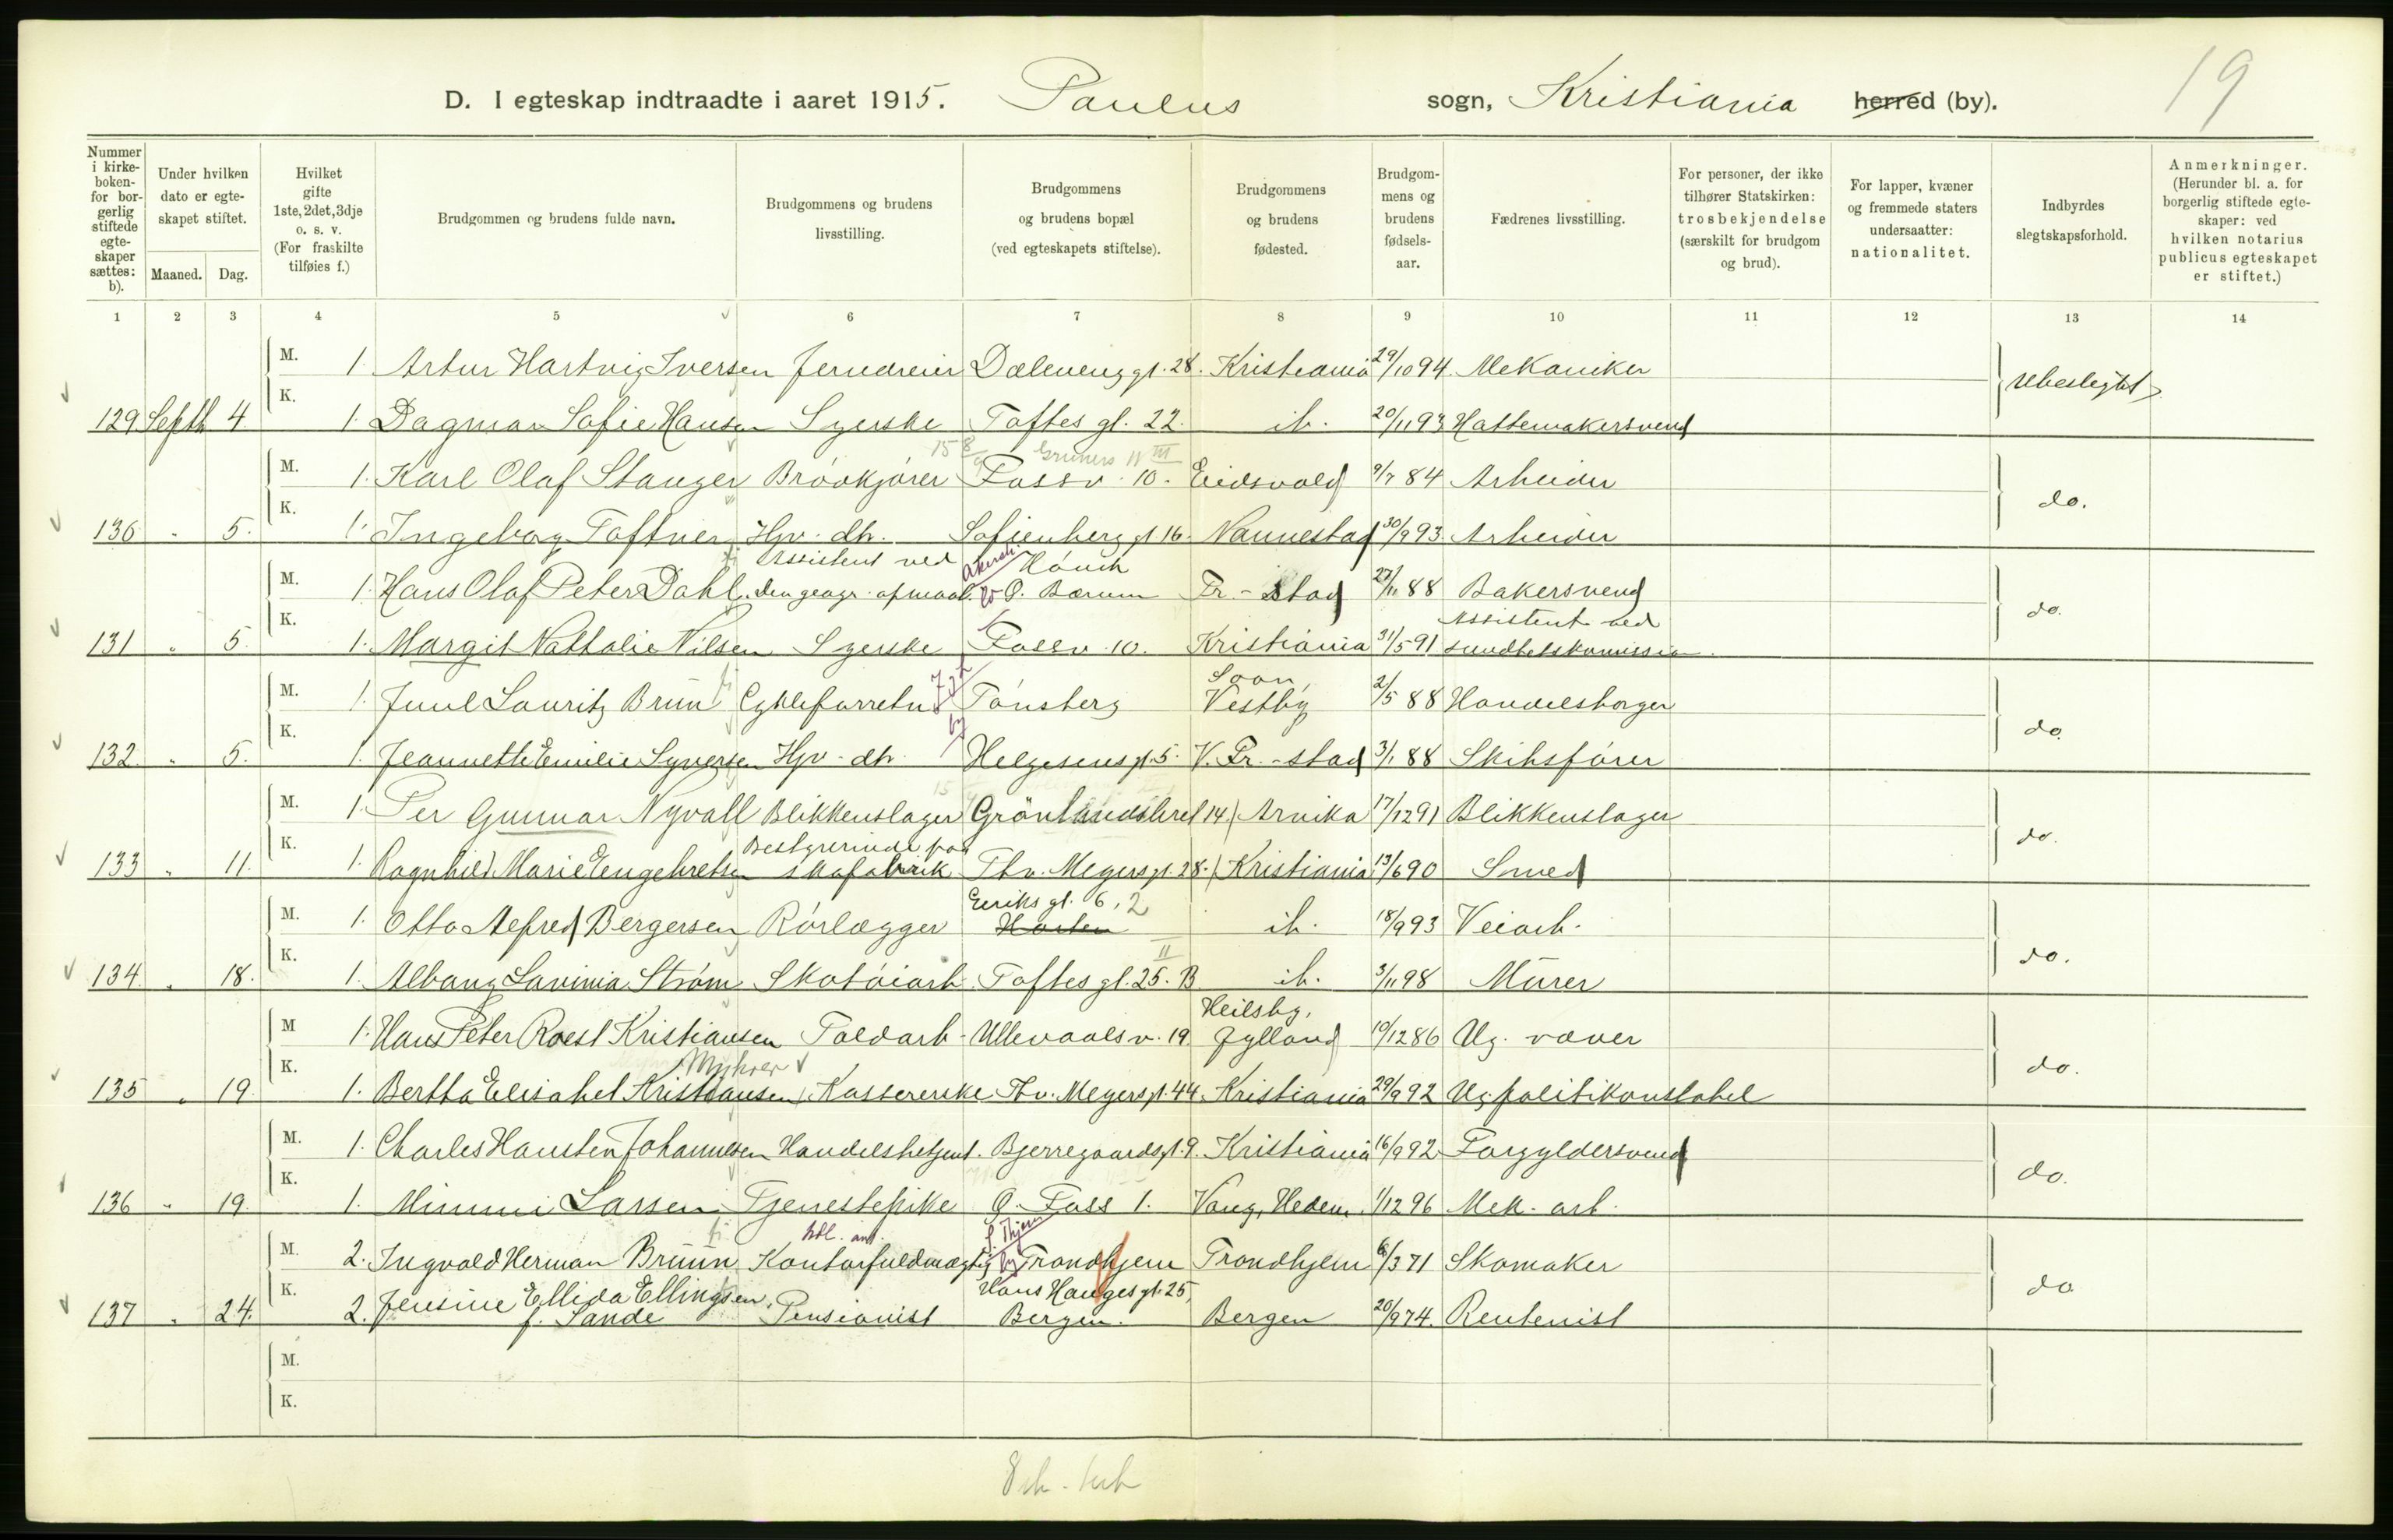 19
D. I egteskap indtraadte i aaret 1915. Paulus sogn, Kristiania herred (by).
Nummer i kirkeboken- for borgerlig stiftede egteskaper sættes: b).
Under hvilken dato er egteskapet stiftet. Maaned. Dag.
Hvilket gifte 1ste, 2det, 3dje o. s. v. (For fraskilte tilføies f.)
Brudgommen og brudens fulde navn.
Brudgommens og brudens livsstilling.
Brudgommens og brudens bopæl (ved egteskapets stiftelse).
Brudgommens og brudens fødested.
Brudgommens og brudens fødselsaar.
Fædrenes livsstilling.
For personer, der ikke tilhører Statskirken: trosbekjendelse (særskilt for brudgom og brud).
For lapper, kvæner og fremmede staters undersaatter: nationalitet.
Indbyrdes slegtskapsforhold.
Anmerkninger. (Herunder bl. a. for borgerlig stiftede egteskaper: ved hvilken notarius publicus egteskapet er stiftet.)
1 2 3 4 5 6 7 8 9 10 11 12 13 14
M. 1. Artur Hartvig Iversen Jerndreier Dælenenggt. 28. Kristiania 29/10 94 Mekaniker Ubeslegtet
129 Septb 4 K. 1. Dagmar Sofie Hansen Syerske Toftes gt. 22. ib. 20/11 93 Hattemakersvend
Gruners 11 III
M. 1. Karl Olaf Stanger Brödkjörer Fossv. 10. Eidsvold 9/7 84 Arbeider do.
130 " 5. K. 1. Ingeborg Toftner Hjv. dtr. Sofienberg gt 16. Nannestad 30/9 93. Arbeider
Assistent ved Hövik
M. 1. Hans Olaf Peter Dahl. den geogr. opmaal. Ø. Bærum Fr.-stad 27/11 88 Bakersvend do.
Assistent ved
131 " 5. K. 1. Margit Nathalie Nilsen Syerske Fossv. 10. Kristiania 31/5 91 sundhetskomission.
Soon,
M. 1. Juul Lauritz Brun Cykleforretn. Tönsberg Vestby 2/5 88 Handelsborger do.
132. " 5. K. 1. Jeannette Emilie Syversen Hjv. dtr. Helgesens gt. 5. V. Fr.-stad 3/1 88 Skibsförer
M. 1. Per Gunnar Nyvall Blikkenslager Grönlandsleret 14. Arvika 17/12 91 Blikkenslager do.
Bestyrerinde paa
133 " 11. K. 1. Ragnhild Marie Engebretsen skofabrik Thv. Meyers gt. 28. Kristiania 13/6 90 Smed
Eeriks gt. 6, 2
M. 1. Otto Alfred Bergersen Rörlægger Horten ib. 18/9 93 Veiarb. do.
II
134. " 18. K. 1. Albang Lavinia Ström Skotöiarb. Toftes gt. 25. B ib. 3/11 98 Mürer
Heilsby,
M 1. Hans Peter Roest Kristiansen Toldarb. Ullevaalsv. 19. Jylland 10/12 86 Ug. væver do.
Myhrer
135 " 19. K. 1. Bertha Elisabet Kristiansen Kassererske Thv. Meyers gt. 44. Kristiania 29/9 92 Ug. politikonstabel
M. 1. Charles Hansten Johannesen Handelsbetjent. Bjerregaardsgt. 9. Kristiania 16/9 92 Forgyldersvend do.
136 " 19. K. 1. Mimmi Larsen Tjenestepike Ø. Foss 1. Vang, Hedem. 1/12 96 Mek. arb.
M. 2. Ingvald Herman Brüün Kontorfuldmægtig Trondhjem Trondhjem 6/3 71 Skomaker do
Hans Hauges gt. 25,
137 " 24. K. 2. Jensine Ellida Ellingsen f. Sande Pensionist Bergen. Bergen 20/9 74. Rentenist
M.
K.